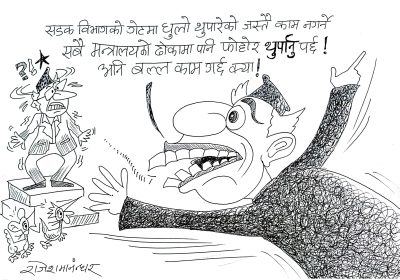 सडक विभागको गेटमा धुलो थुपारेको जस्तै काम नगर्ने
सबै मन्त्रालयको ढोकामा पनि फोहोर थुपार्नु पर्छ !
अनि बल्ल काम गर्छ क्या !
?!
राजेशमानन्धर